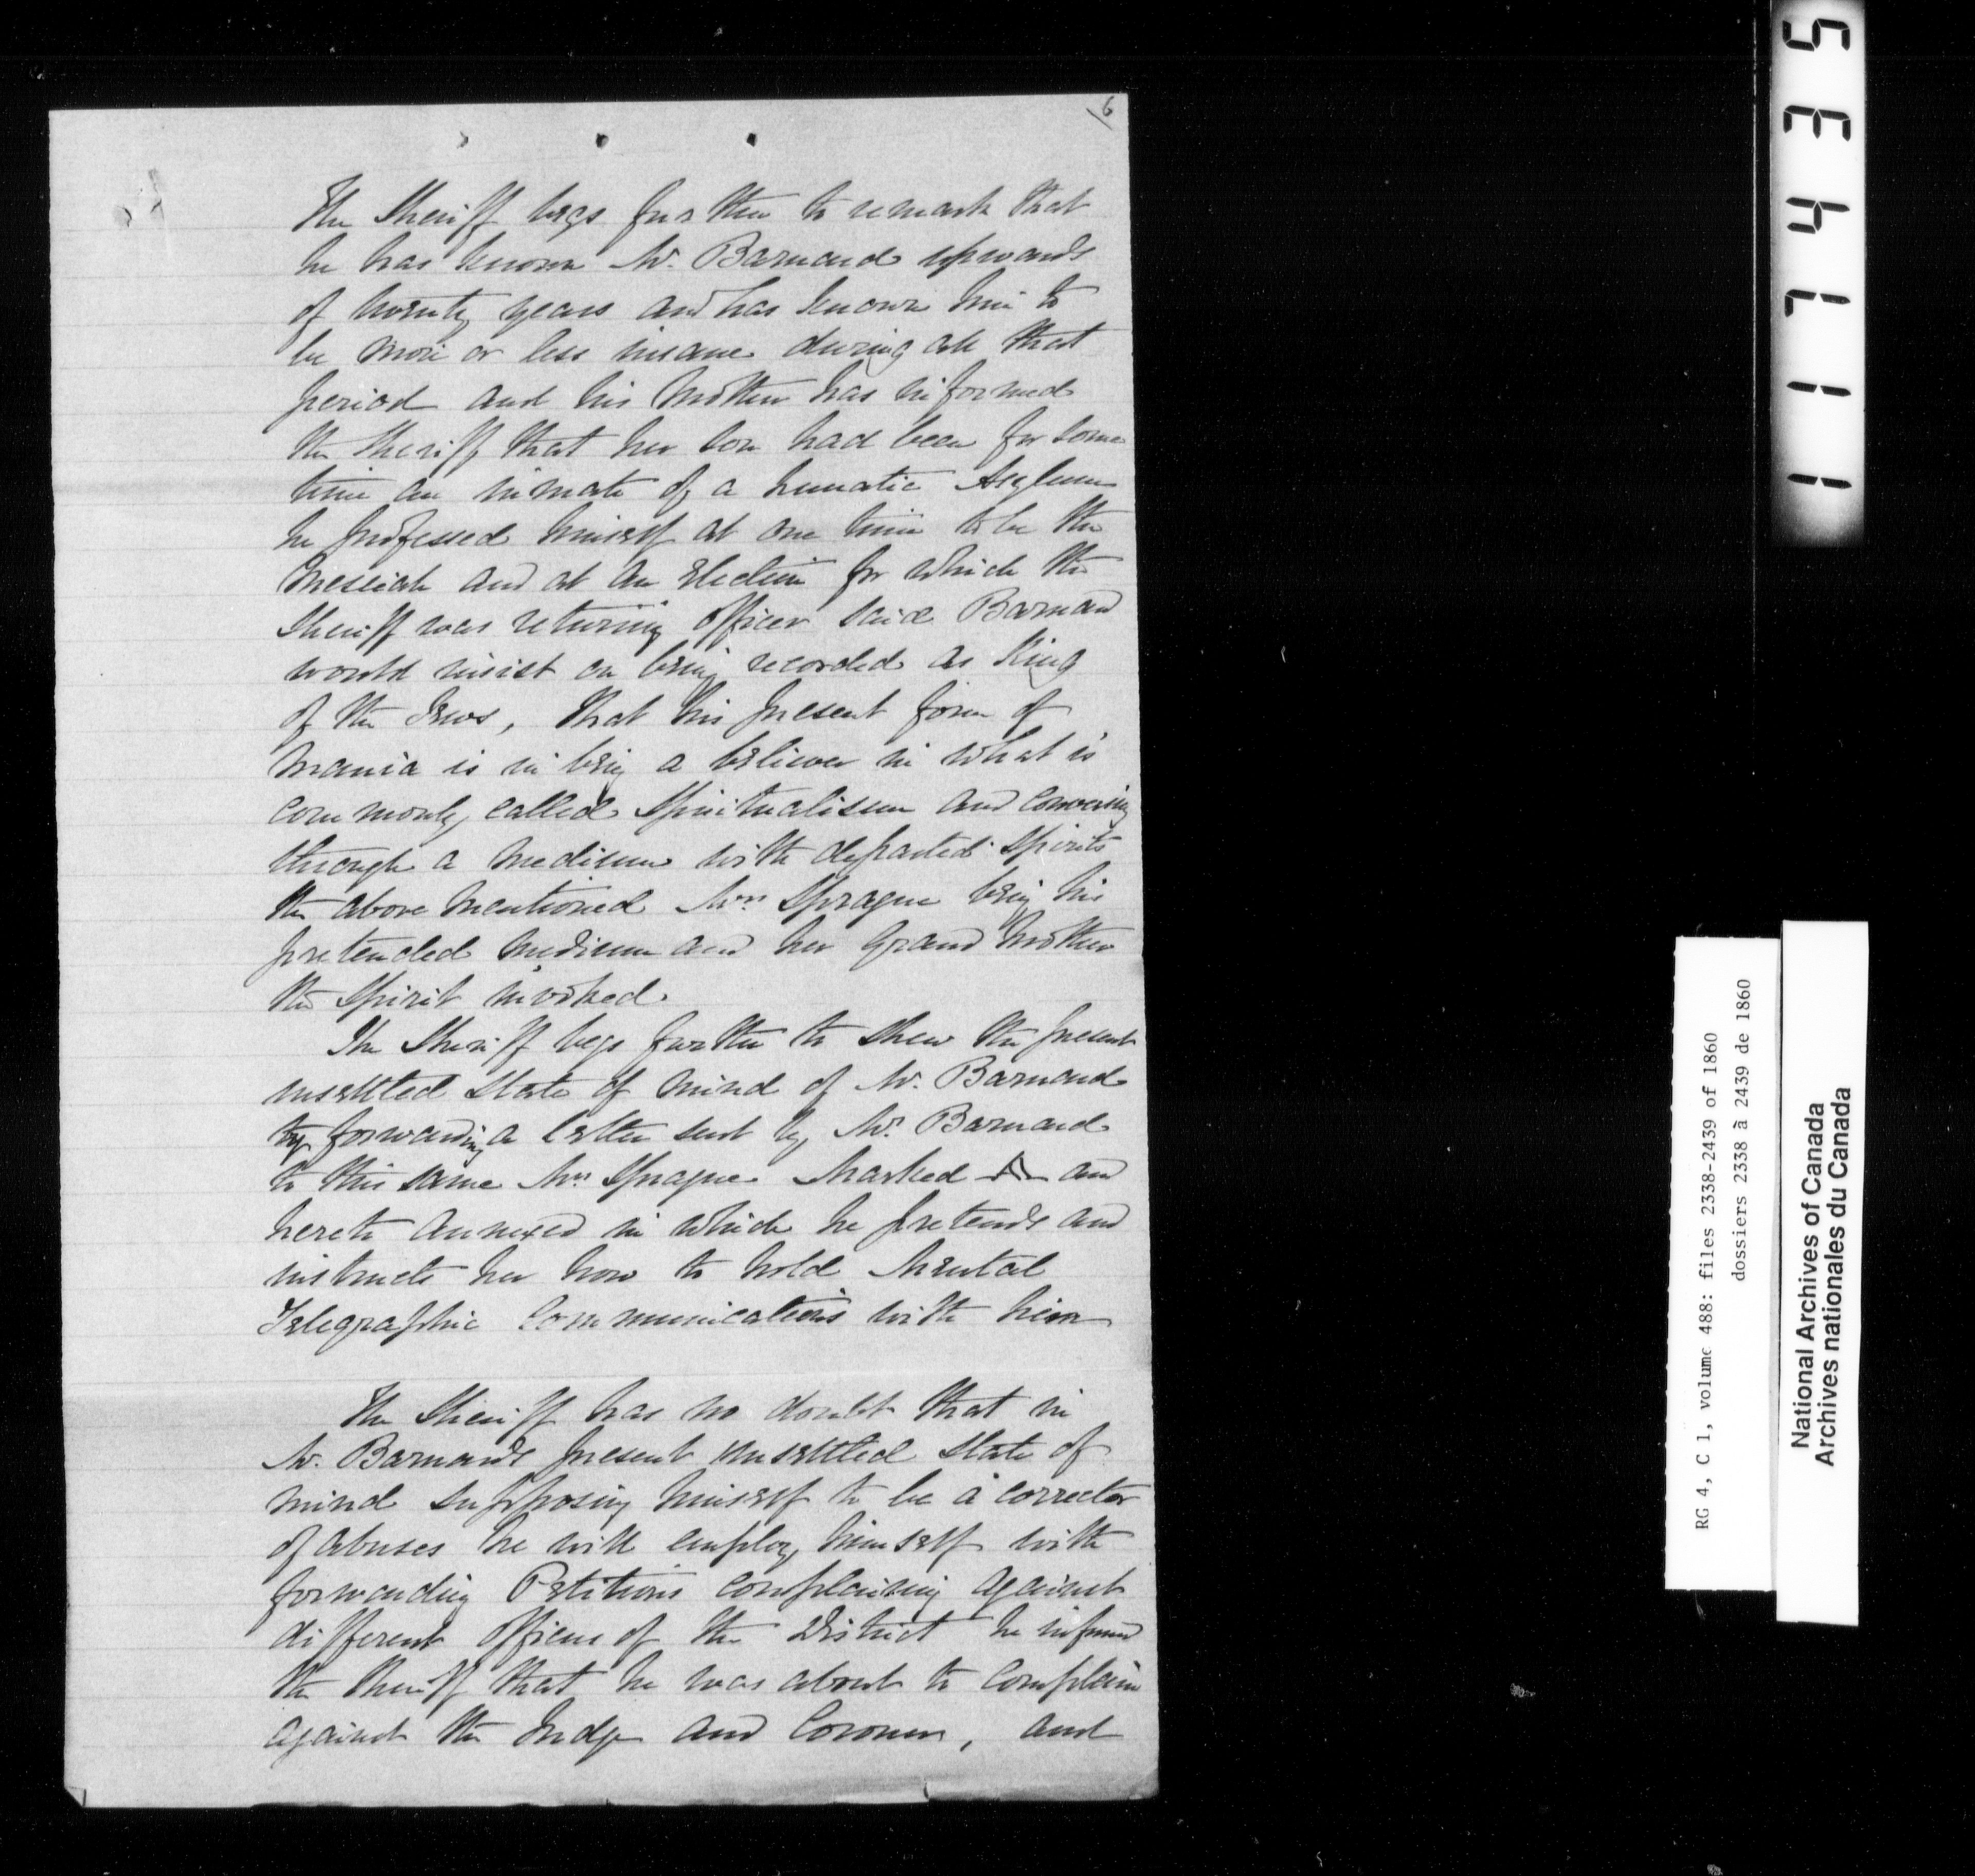 6
The Sheriff begs further to remark that
he has known Mr. Barnard upwards
of twenty years and has known him to
be more or less insane during all that
period and his Mother has informed
the Sheriff that her son had been for some
time an inmate of a Lunatic Asylum
he professed himself at one time to be the
Messiah and at an Election for which the
Sheriff was returning officer said Barnard
would insist on being recorded as King
of the Jews, that his present form of
Mania is in being a believer in what is
commonly called Spiritualism and conversing
through a Medium with departed Spirits
the above Mentioned Mrs. Sprague being his
pretended Medium and her Grand Mother
the Spirit invoked.
The Sheriff begs further to shew the present
unsettled state of mind of Mr. Barnard
by forwarding a letter sent by Mr. Barnard
to this same Mrs. Sprague Marked A and
hereto annexed in which he pretends and
instructs her how to hold Mental
Telegraphic Communications with him
The Sheriff has no doubt that in
Mr. Barnards present unsettled state of
mind supposing himself to be a corrector
of abuses he will employ himself with
forwarding Petitions complaining against
different officers of the District he informed
the Sheriff that he was about to complain
against the Judge and Coroner, and
117435
RG 4, C 1, volume 488: files 2338-2439 of 1860
dossiers 2338 à 2439 de 1860
National Archives of Canada
Archives nationales du Canada